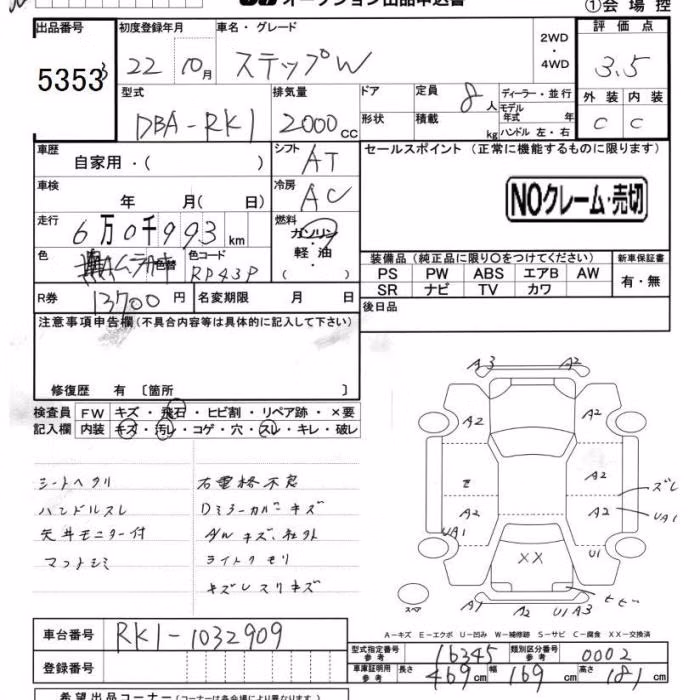 オークション出品申込書
①会場控
出品番号 初度登録年月 車名・グレード 2WD・4WD 評価点
53533 22 10月 ステップW 3.5
型式 排気量 ドア 定員 8人 ディーラー・並行 外装 内装
DBA-RK1 2000cc 形状 積載 kg モデル年式 年 C C
ハンドル 左・右
車歴 自家用・( ) シフト AT セールスポイント (正常に機能するものに限ります)
車検 年 月( 日) 冷房 AC NOクレーム・売切
走行 6万0千993km 燃料 ガソリン・軽油・( )
色 色替 色コード RP43P 装備品 (純正品に限り○をつけてください) 新車保証書
PS PW ABS エアB AW 有・無
SR ナビ TV カワ
R券 13700円 名変期限 月 日 後日品
注意事項申告欄(不具合内容等は具体的に記入して下さい)
修復歴 有 〔箇所 〕
検査員 FW キズ・飛石・ヒビ割・リペア跡・×要
記入欄 内装 キズ・汚レ・コゲ・穴・スレ・キレ・破レ
シートヘタリ 右電格不良
ハンドルスレ Dミラーカバーキズ
天井モニター付 AWキズ、社外
マット シミ ライトクモリ
キズレスリキズ
A3 A2
A2 A2
E A2 ズレ
A2 A2 UA1
UA1 U1
XX
ヒビ
スペア A1 A2 U1 A3
A-キズ E-エクボ U-凹み W-補修跡 S-サビ C-腐食 XX-交換済
車台番号 RK1-1032909
型式指定番号 参考 16345 類別区分番号 参考 0002
登録番号 車庫証明用 参考 長さ 469cm 幅 169cm 高さ 181cm
希望出品コーナー (コーナーは各会場により異なります。)